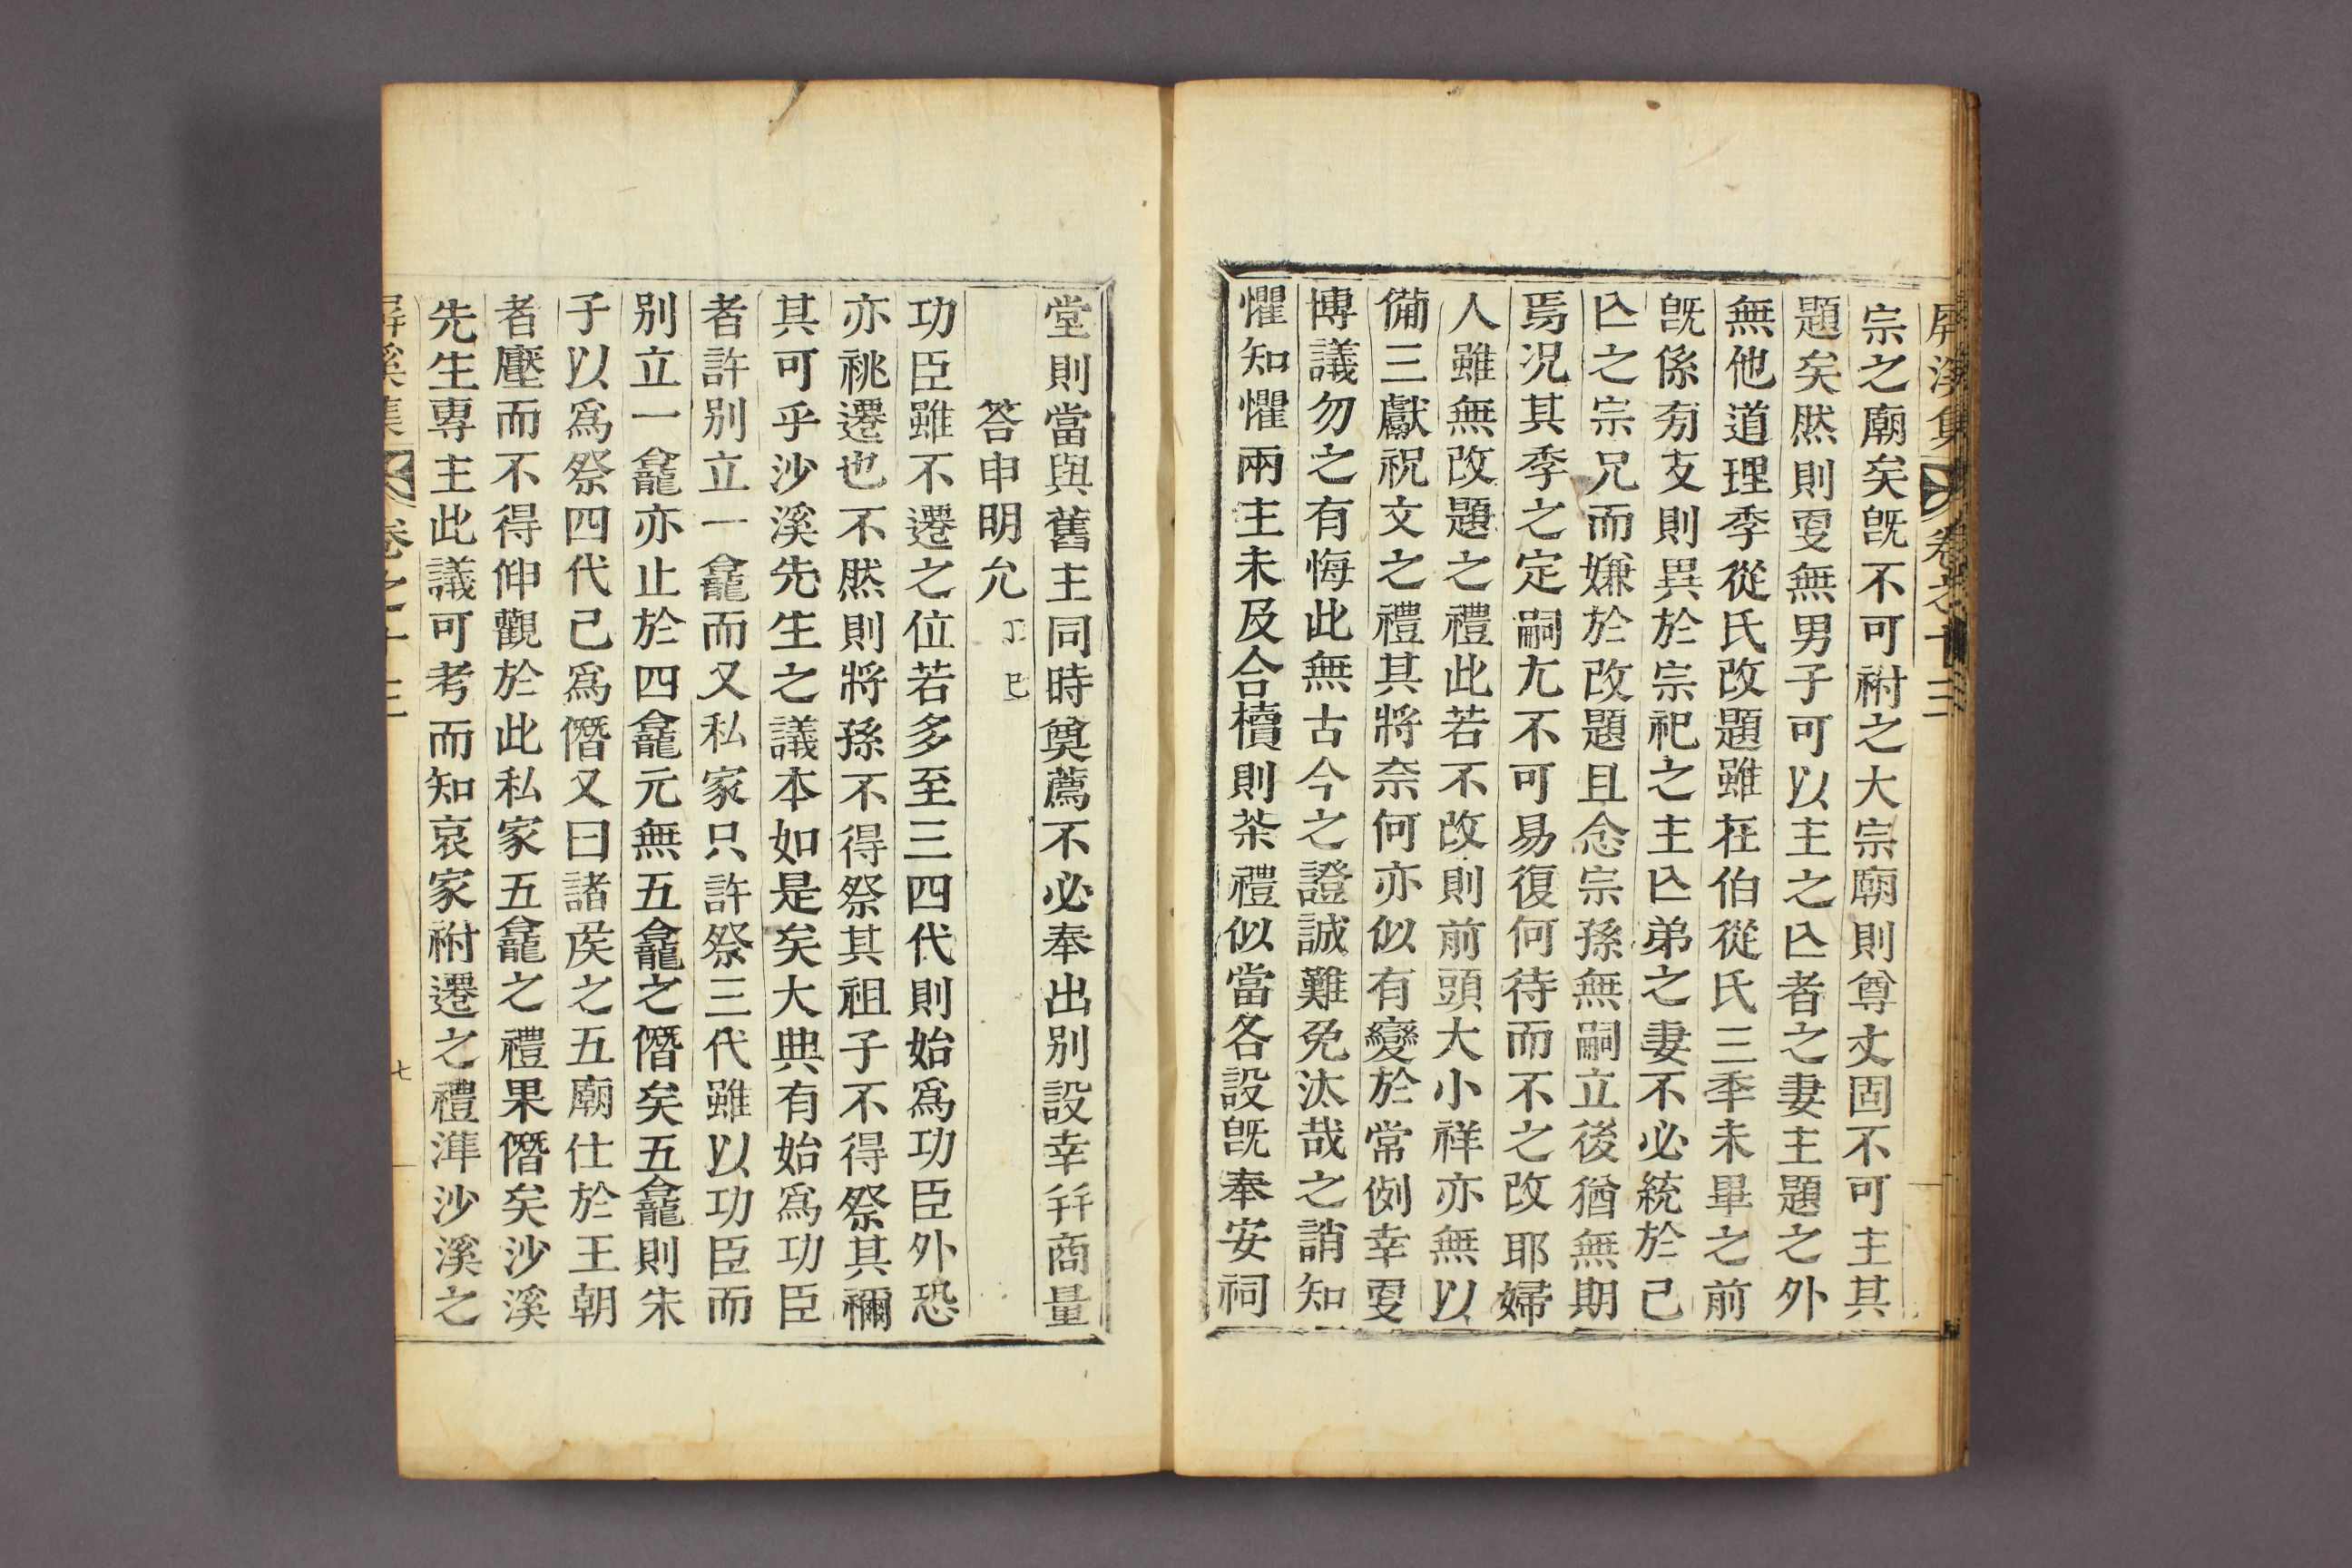 屏溪集 卷之十三
宗之廟矣旣不可祔之大宗廟則尊丈固不可主其
題矣然則㪅無男子可以主之亾者之妻主題之外
無他道理季從氏改題雖在伯從氏三秊未畢之前
旣係旁友則異於宗祀之主亾弟之妻不必統於己
亾之宗兄而嫌於改題且念宗孫無嗣立後猶無期
焉况其季之定嗣尢不可易復何待而不之改耶婦
人雖無改題之禮此若不改則前頭大小祥亦無以
備三獻祝文之禮其將奈何亦似有變於常例幸㪅
博議勿之有悔此無古今之證誠難免汰哉之誚知
懼知懼兩主未及合櫝則茶禮似當各設旣奉安祠
堂則當與舊主同時奠薦不必奉出别設幸幷商量
答申明允 丁巳
功臣雖不遷之位若多至三四代則始爲功臣外恐
亦祧遷也不然則將孫不得祭其祖子不得祭其禰
其可乎沙溪先生之議本如是矣大典有始爲功臣
者許别立一龕而又私家只許祭三代雖以功臣而
别立一龕亦止於四龕元無五龕之僭矣五龕則朱
子以爲祭四代已爲僭又曰諸矦之五廟仕於王朝
者壓而不得伸觀於此私家五龕之禮果僭矣沙溪
先生專主此議可考而知哀家祔遷之禮準沙溪之
屏溪集 卷之十三 七